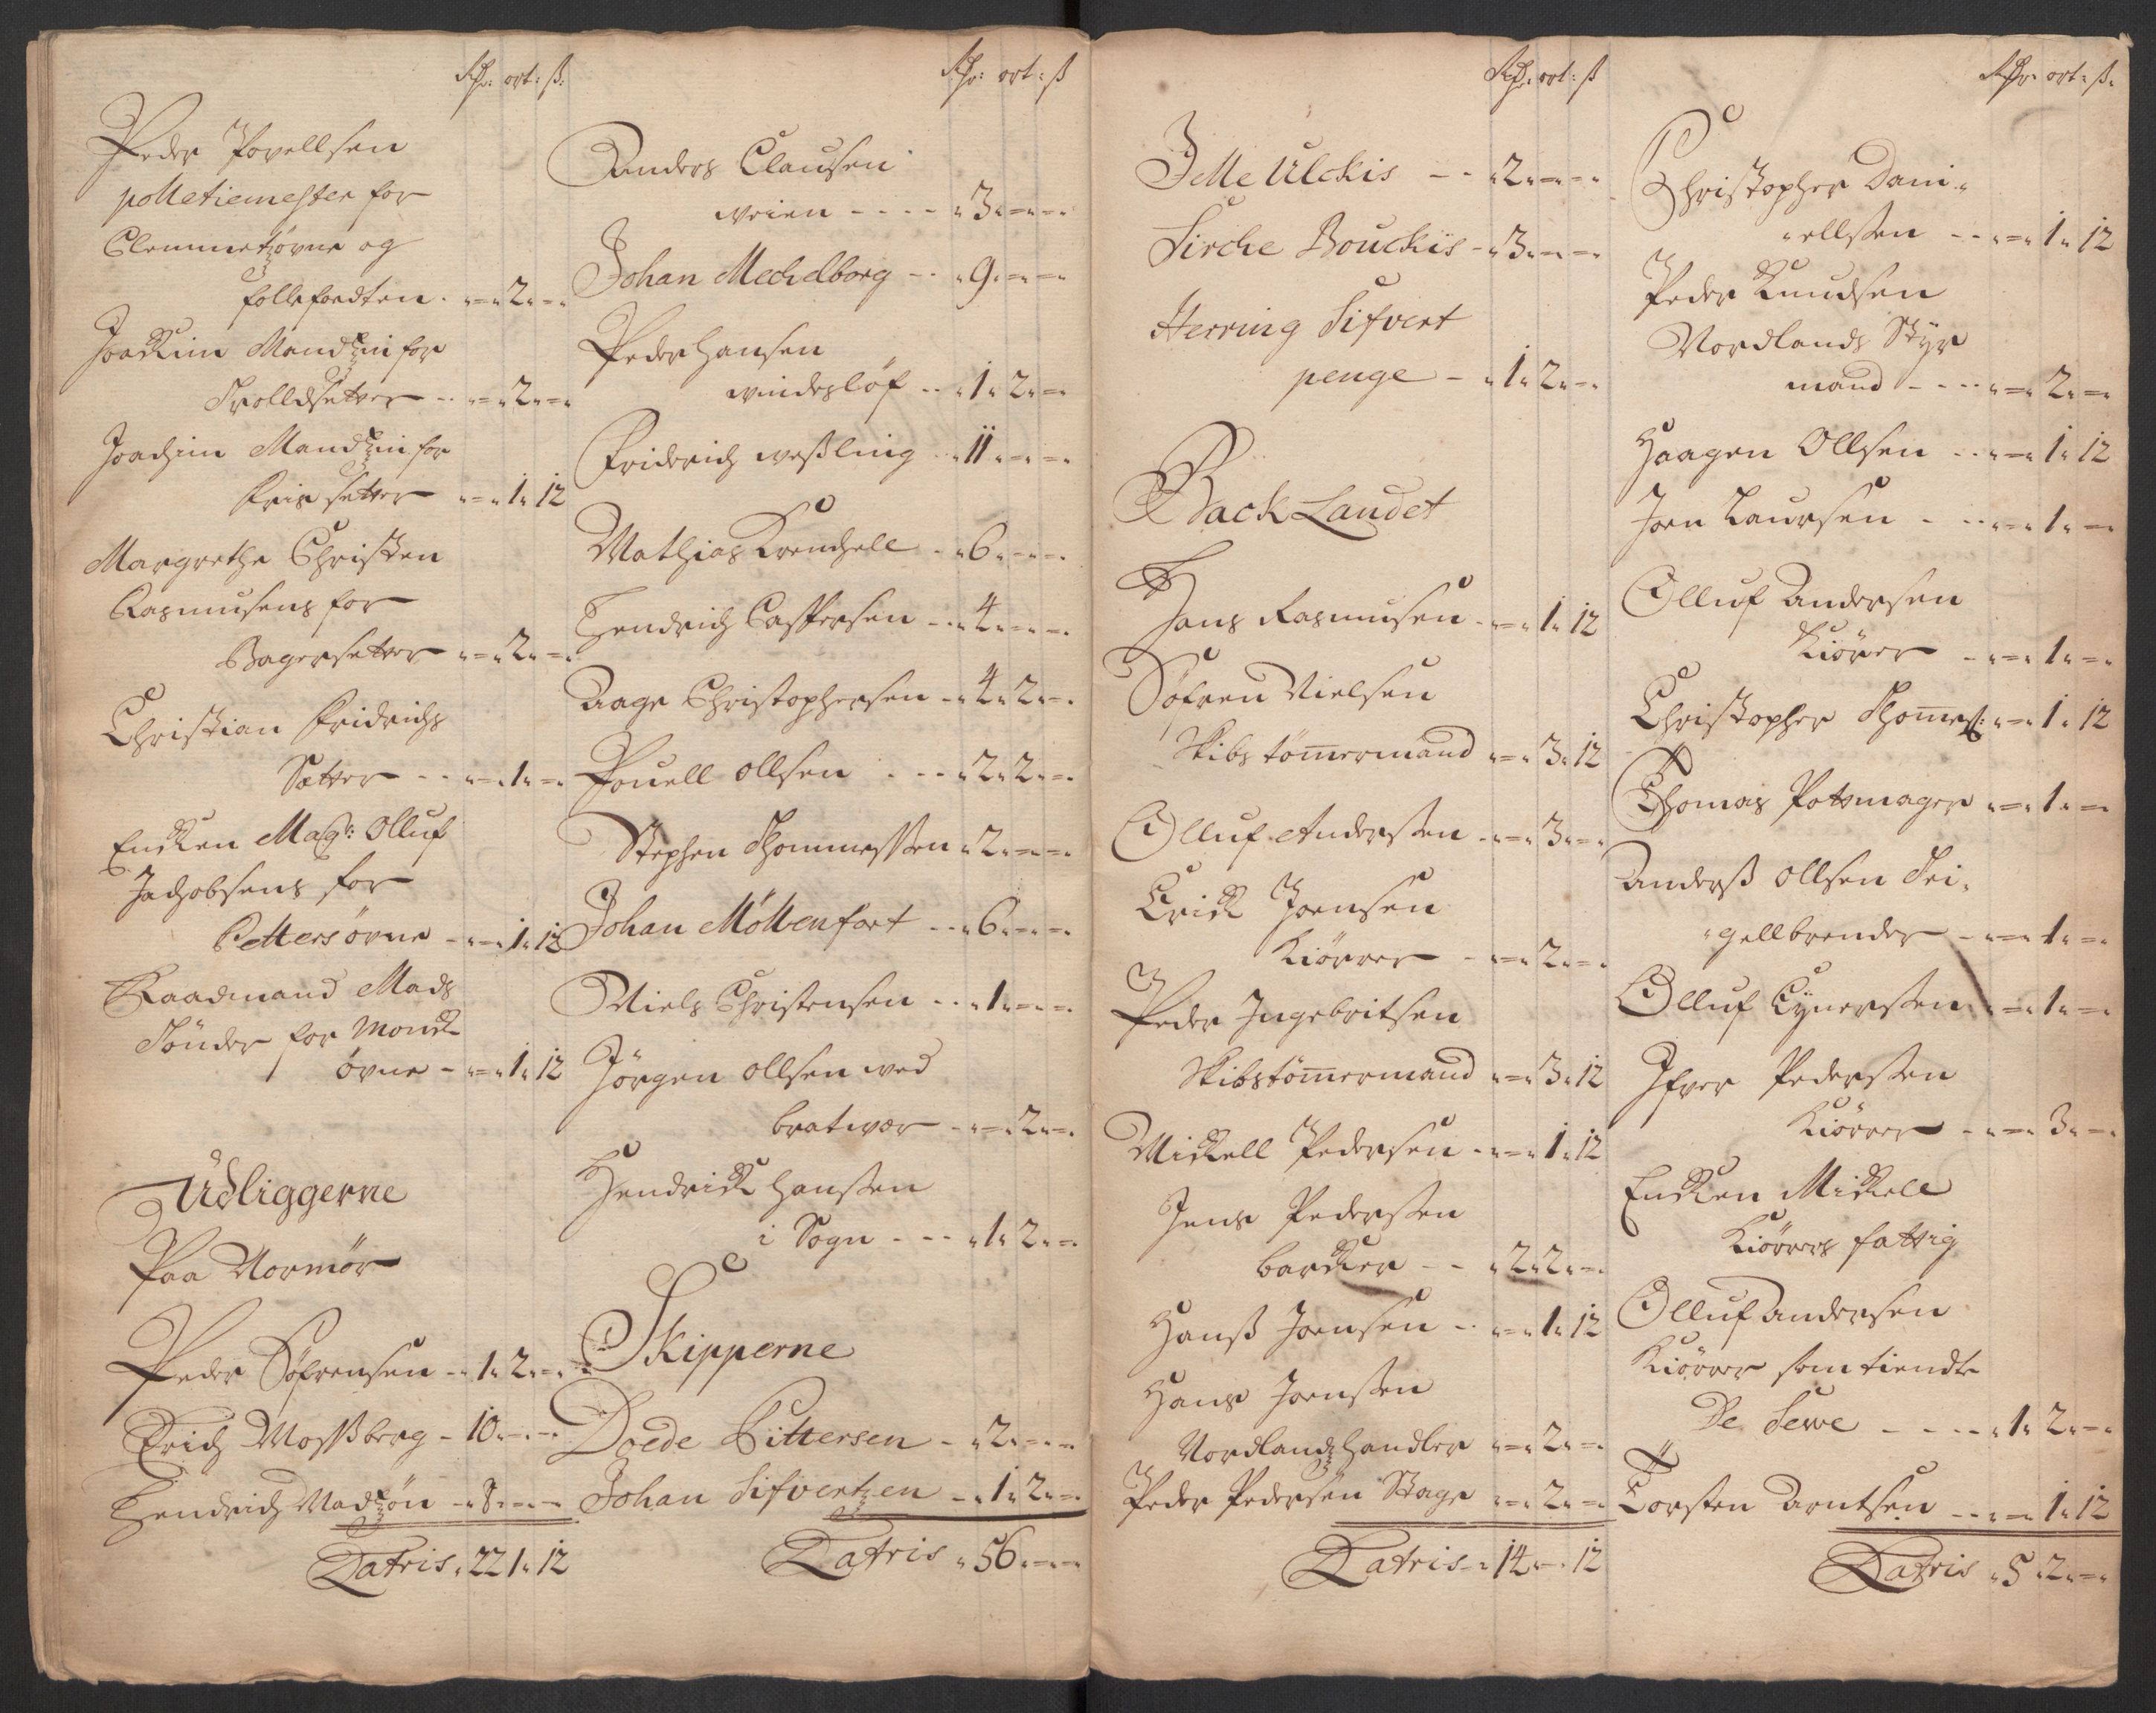 Rdr: ort: ß:
Peder Povellsen
politiemester for
Clemmetzøvne og
follefordten . „=„2„=„
Joackim Mandzin for
Trolldsetter -- „=„2„=„
Joachim Mandzin for
Frissetter „=„1„12
Margrethe Christen
Rasmusens for
Bagersetter „=„2„=„
Christian Fridrichs
Setter -- „=„1„=„
Encken Magr: Olluf
Jachobsens for
Pettersøvne - „=„1„12
Raadmand Mads
Tønder for Monck
øvne - „=„1„12
Udliggerne
Paa Normør
Peder Søfrensen -„1„2„=„
Erich Mossßberg - 10„=„=„
Hendrich Madzøn -„8„=„=
Latris „22„1„12
Rdr: ort: ß
Anders Clausen
veien ---- „3„=„=„
Johan Mechelborg -- „9„=„=„
Peder Hansen
vindesløf -- „1„2„=„
Friderich Weßling „11„=„=„
Mathias Krenchell - „6„=„=„
Hendrich Casspersen -„4„=„=„
Aage Christophersen -„4„2„=„
Pouell Ollsen . -- „2„2„=„
Stephen Thommessen „2„=„=„
Johan Møllenfort -- „6„=„=„
Niels Christensen -- „1„=„=„
Jörgen Ollsen wed
bratwær - „=„2„=„
Hendrick Hanssen
i Sogn --- „1„2„=„
Skipperne
Doede Pittersen - „2„=„=„
Johan Sifvertzen - „1„2„=„
Latris „56„=„=„
Rdr: ort: ß
Jelle Ulckis -- „2„=„=„
Sirche Bouckis -„3„=„=„
Herring Sifvert
penge - „1„2„=„
Back Landet
Hans Rasmusen -„=„1„12
Søfren Nielsen
Skibs tömermand „=„3„12
Olluf Anderssen -„=„3„=„
Erick Joensen
Kiörrer -„=„2„=„
Peder Ingebritsen
Skibstömermand „=„3„12
Mickell Pedersen -„=„1„12
Jens Pederssen
barcker -- „2„2„=„
Hanß Joensen -- „=„1„12
Hans Joenssen
Nordlandzhandler „=„2„=„
Peder Pedersen Stage „=„2„=„
Latris „14„=„12
Rdr: ort: ß:
Christopher Dani-
ellssen -- „=„1„12
Peder Knudsen
Nordlands Styr
mand --- „=„2„=„
Haagen Ollsen -- „=„1„12
Joen Laursen - -- „=„1„=
Olluf Andersen
Kiörer - „=„1„=„
Christopher Thomess: „=„1„12
Thomas Pottmager „=„1„=
Anderß Ollsen Tei-
gellbrender - „=„1„=„
Olluf Eynerssen „=„1„=„
Ifver Pederssen
Kiörrer - „=„3„=„
Encken Mickell
Kiörrers fattig
Olluf Andersen
Kiörrer som tiendte
De Sewe ---- „1„2„=„
Torsten Arntsen -- „=„1„12
Latris „5„2„=„